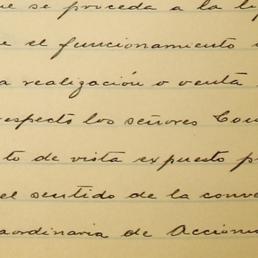 ue se proceda a la li
e el funcionamiento
a realización o venta
respecto los señores Con
to de vista expuesto p
el sentido de la conv
raordinaria de Accioni